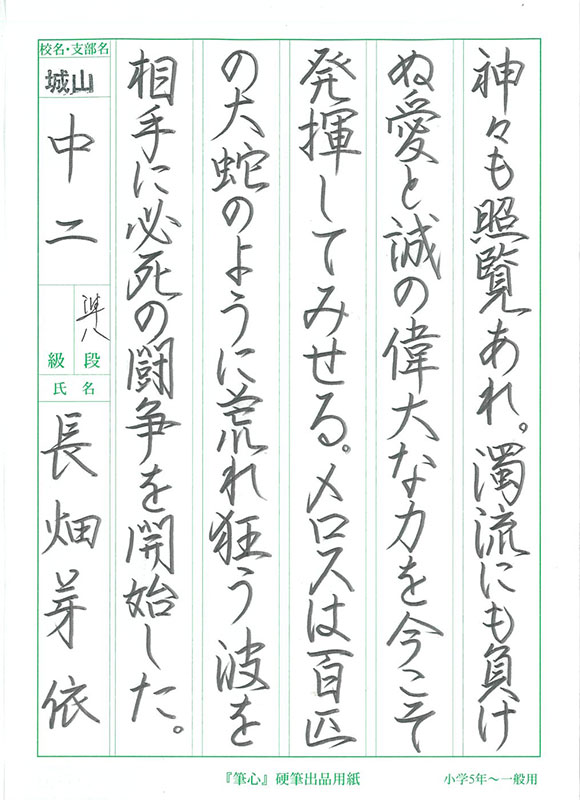 神々も照覧あれ。濁流にも負け
ぬ愛と誠の偉大な力を今こそ
発揮してみせる。メロスは百匹
の大蛇のように荒れ狂う波を
相手に必死の闘争を開始した。
校名・支部名
城山
中二
準八
段
級
氏名
長畑芽依
『筆心』硬筆出品用紙
小学5年～一般用